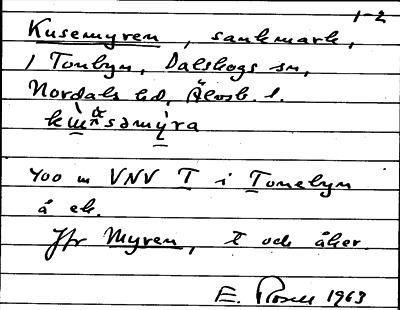 1-2
Kusemyren, sankmark,
i Tonbyn, Dalskogs sn,
Nordals hd, Älvsb. l.
400 m VNV T i Tonebyn
å ek.
Jfr Myren, t och åker.
E. Rosell 1963